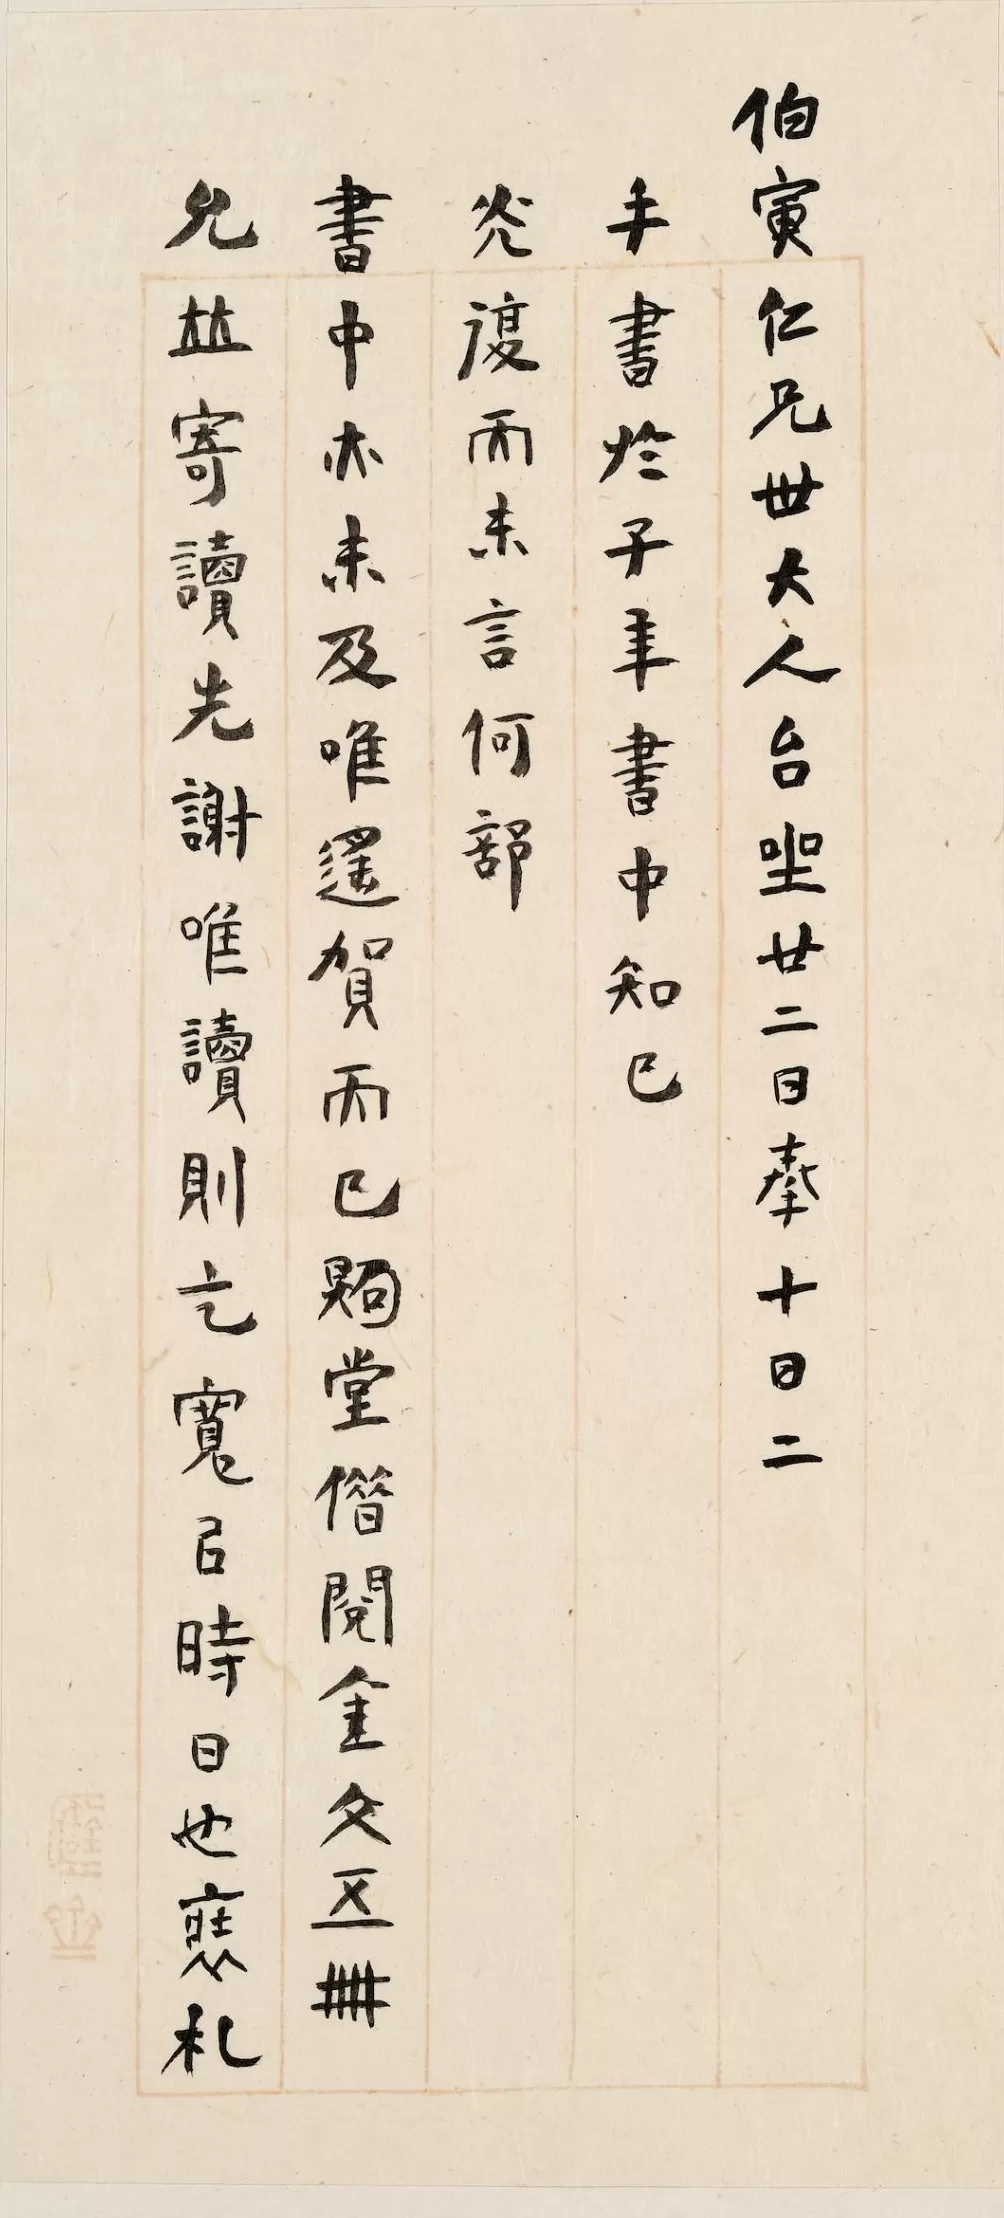 伯寅仁兄世大人台坐廿二日奉十日二
手書於子年書中知已
光復而未言何部
書中亦未及唯遙賀而已煦堂借閱金文五冊
允並寄讀先謝唯讀則乞寬㠯時日也札